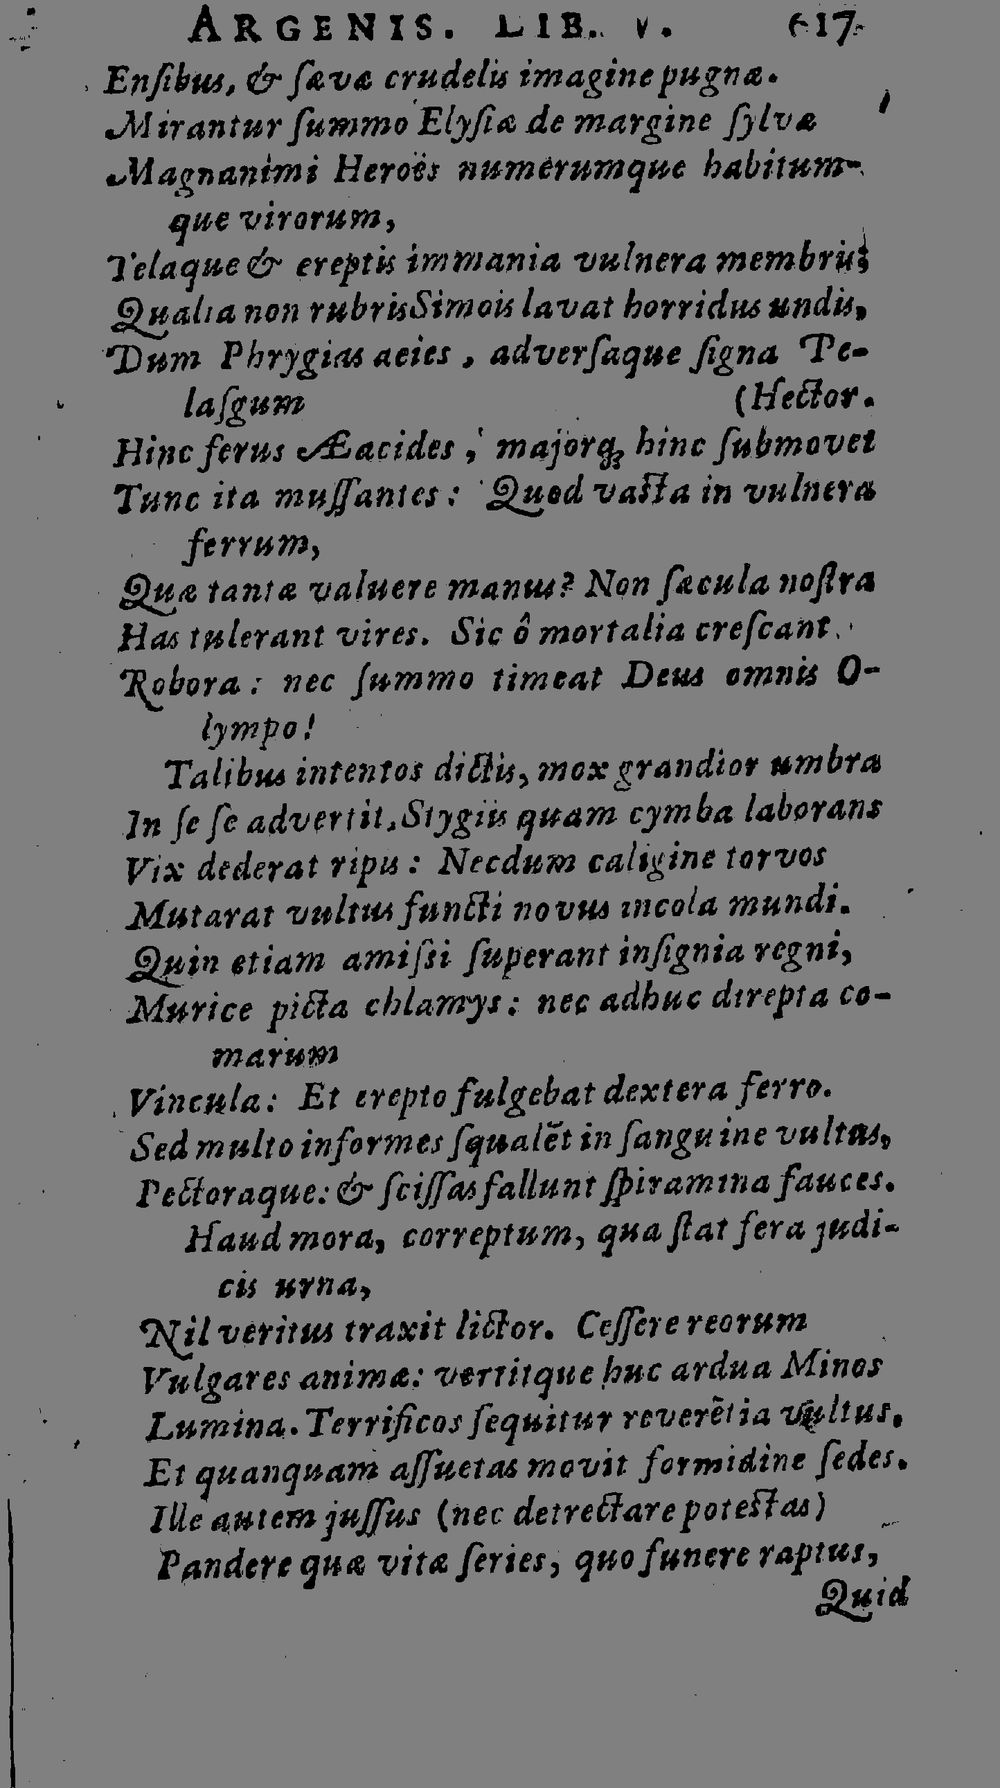 ARGENIS. LIB. V. 617
Enſibus, & ſævæ crudelis imagine pugnæ.
Mirantur ſummo Elyſiæ de margine ſylvæ
Magnanimi Heroës numerumque habitum-
que virorum,
Telaque & ereptis immania vulnera membris;
Qualia non rubris Simois lavat horridus undis,
Dum Phrygias acies, adverſaque ſigna Pe-
laſgum (Hector.
Hinc ferus Æacides, majorq; hinc ſubmovet
Tunc ita muſſantes: Quod vaſta in vulnera
ferrum,
Quæ tantæ valuere manus? Non ſæcula noſtra
Has tulerant vires. Sic ô mortalia creſcant
Robora: nec ſummo timeat Deus omnis O-
lympo!
Talibus intentos dictis, mox grandior umbra
In ſe ſe advertit, Stygiis quam cymba laborans
Vix dederat ripis: Necdum caligine torvos
Mutarat vultus functi novus incola mundi.
Quin etiam amiſsi ſuperant inſignia regni,
Murice picta chlamys: nec adhuc direpta co-
marum
Vincula: Et erepto fulgebat dextera ferro.
Sed multo informes ſqualẽt in ſanguine vultus,
Pectoraque: & ſciſſas fallunt ſpiramina fauces.
Haud mora, correptum, qua ſtat fera judi-
cis urna,
Nil veritus traxit lictor. Ceſſere reorum
Vulgares animæ: vertitque huc ardua Minos
Lumina. Terrificos ſequitur reverẽtia vultus,
Et quanquam aſſuetas movit formidine ſedes.
Ille autem juſſus (nec detrectare poteſtas)
Pandere quæ vitæ ſeries, quo funere raptus,
Quid